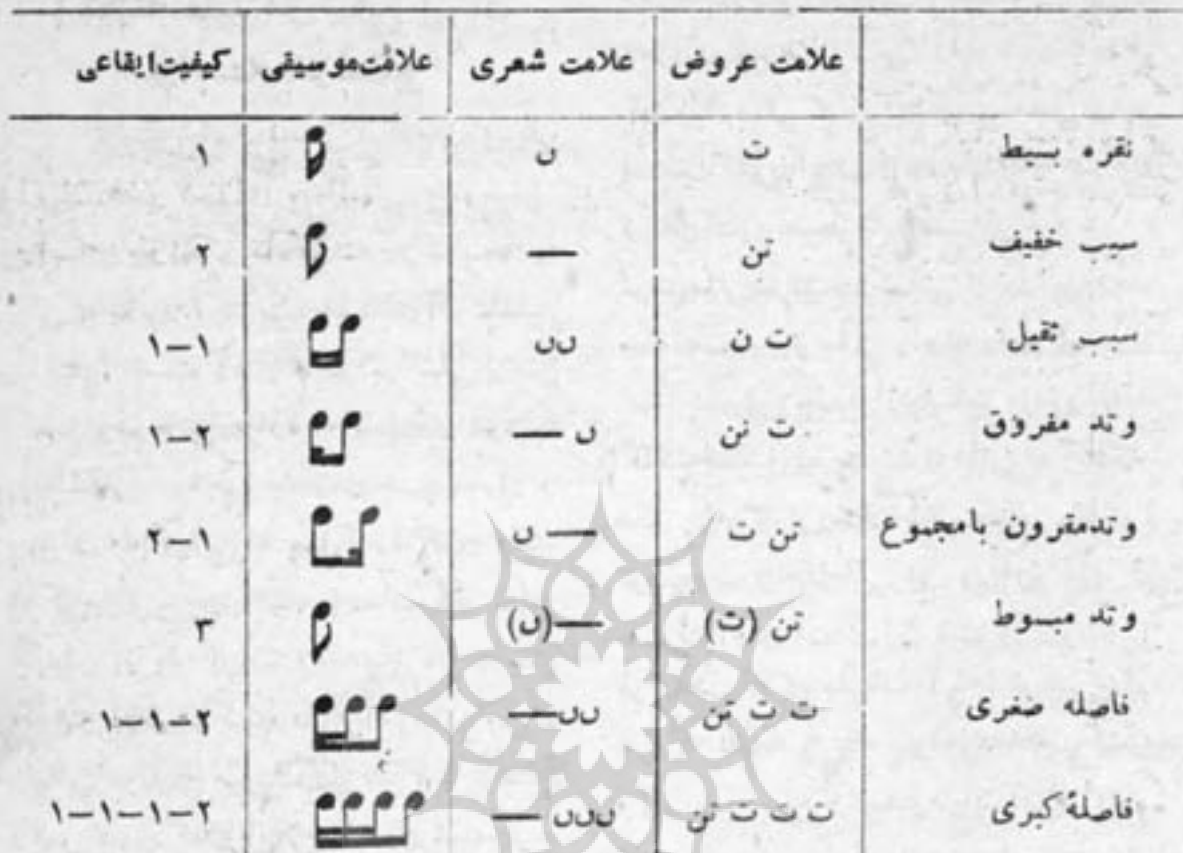 علامت عروض علامت شعری علامت موسیقی کیفیت ایقاعی
نقره بسیط ت ں ۱
سبب خفیف تن — ۲
سبب ثقیل ت ن ںں ۱-۱
وتد مفروق ت تن ں — ۱-۲
وتد مقرون بامجموع تن ت — ں ۲-۱
وتد مبسوط تن (ت) —(ں) ۳
فاصله صغری ت ت تن ںں— ۱-۱-۲
فاصلهٔ کبری ت ت ت تن ںںں — ۱-۱-۱-۲